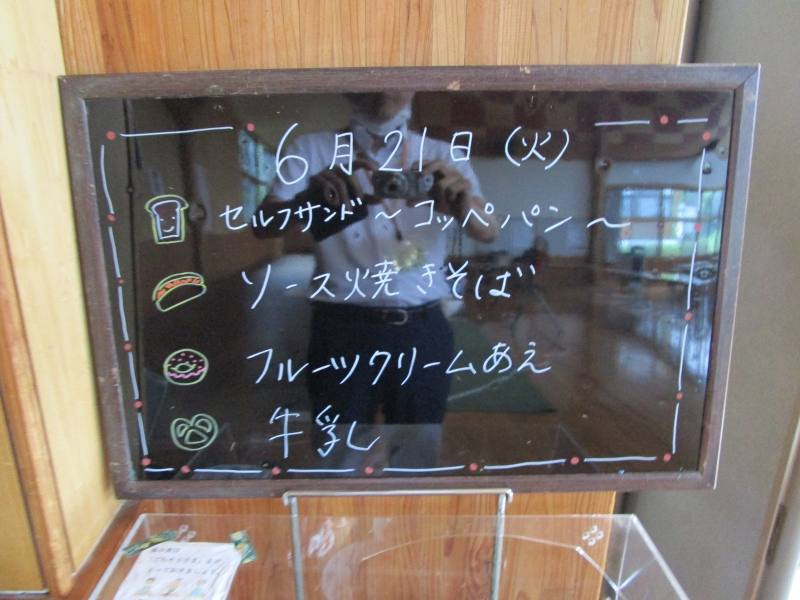 6月21日(火)
セルフサンド～コッペパン～
ソース焼きそば
フルーツクリームあえ
牛乳